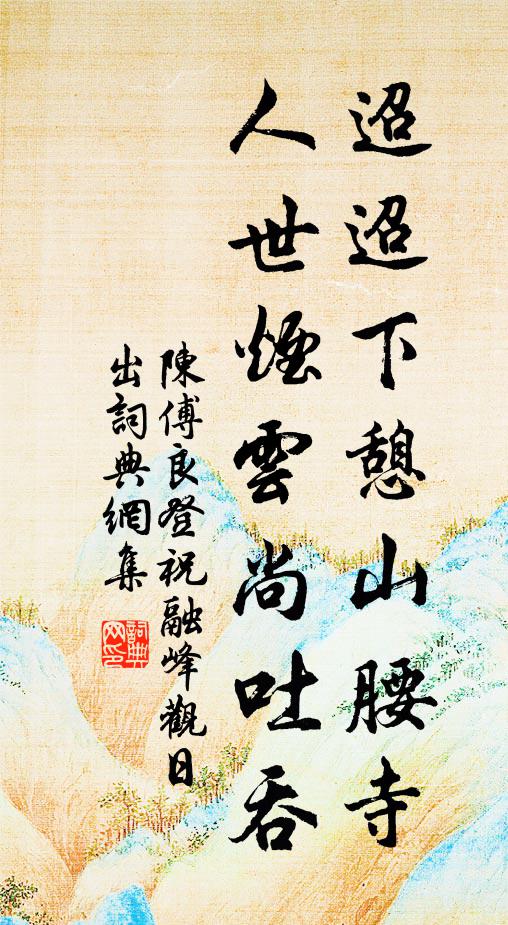 迢迢下憩山腰寺
人世煙雲尚吐吞
陳傅良登祝融峰觀日
出詞典網集
詞典网印